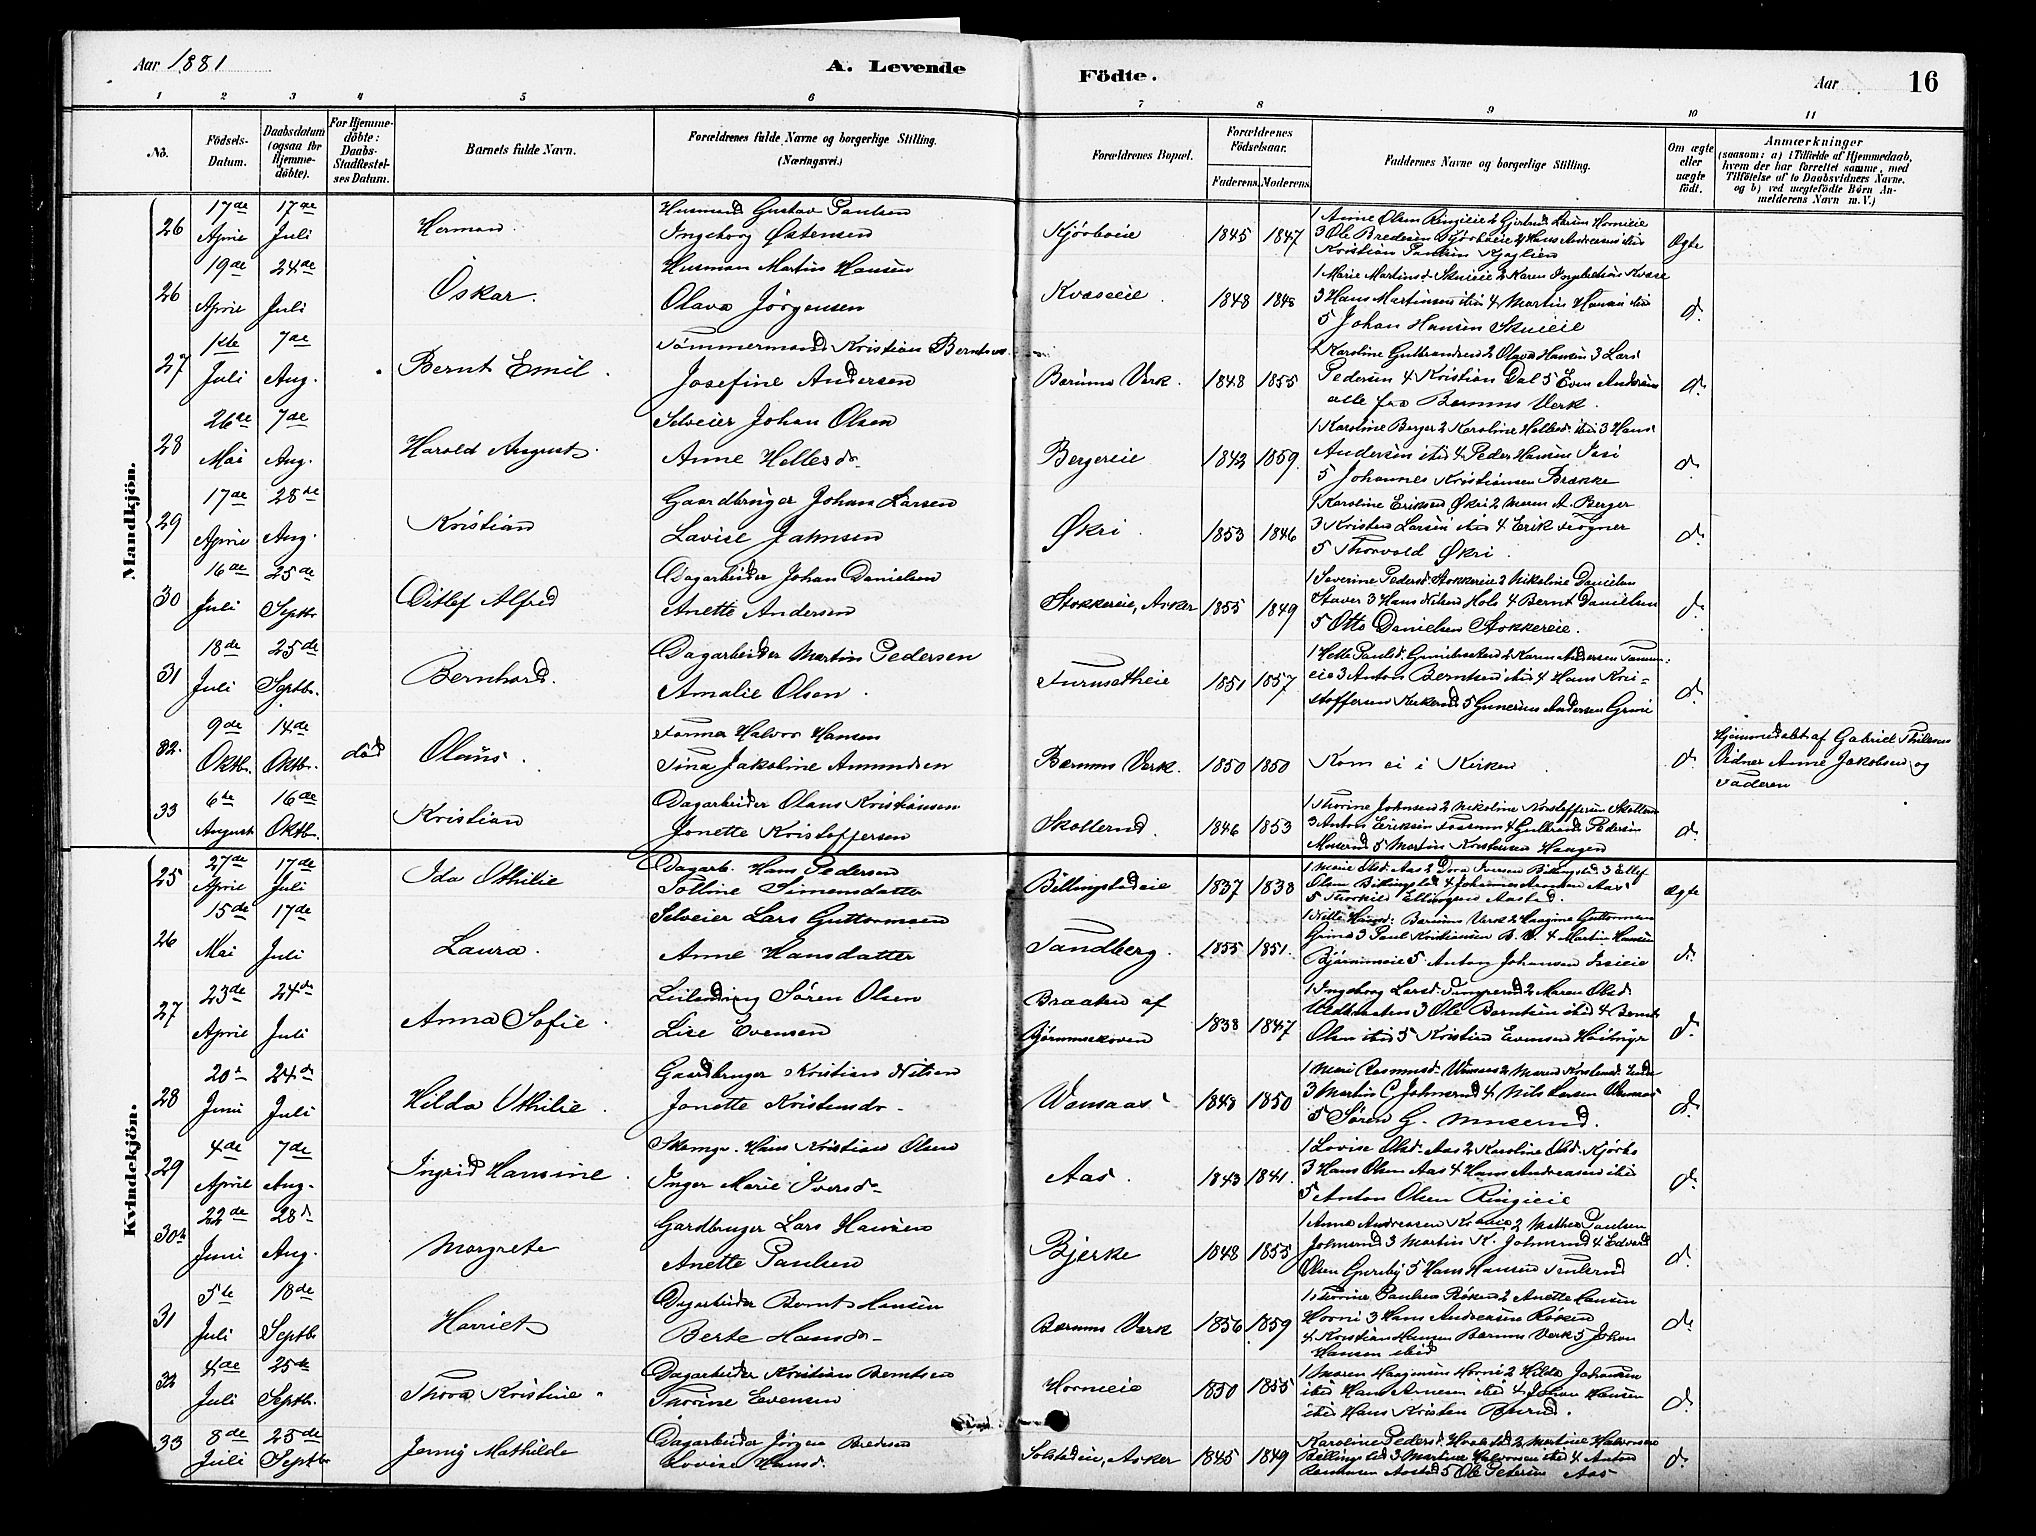 Aar 1881
A. Levende
Födte.
Aar
16
1 2 3 4 5 6 7 8 9 10 11
No.
Födsels-Datum.
Daabsdatum (ogsaa for Hjemme-döbte).
For Hjemme-döbte: Daabs-Stadfæstel-ses Datum.
Barnets fulde Navn.
Forældrenes fulde Navne og borgerlige Stilling. (Næringsvei.)
Forældrenes Bopæl.
Forældrenes Födselsaar.
Faderens. Moderens.
Faddernes Navne og borgerlige Stilling.
Om ægte eller uægte födt.
Anmærkninger
(saasom: a) i Tilfælde af Hjemmedaab, hvem der har forrettet samme, med Tilföielse af to Daabsvidners Navne. og b) ved uægtefödte Börn An-melderens Navn m.V.)
Mandkjön.
26 17de April 17de Juli Herman. Husmand Gustav Paulsen
Ingeborg Østensen Kjørboeie 1845 1847 Ægte
3 Ole Bredesen Kjørboeie 4 Hans Andreasen
Kristian Paulsen
26 19de April 24de Juli Oskar. Husman Martin Hansen
Olava Jörgensen Kvæseie 1848 1848 d.
3 Hans Martinsen ibid 4 Martin Hansen ibid
5 Johan Hansen Skuieie
27 1ste Juli 7de Aug. Bernt Emil. Tömmermand Kristian Berntsen
Josefine Andersen Bærums Verk. 1848 1855 d.
1 Karoline Gulbrandsen 2 Olava Hansen 3 Lars
Pedersen 4 Kristian Dal 5 Even Andersen
alle fra Bærums Verk.
28 26de Mai 7de Aug. Harald August. Selveier Johan Olsen
Anne Hellesd. Bergereie 1842 1859. d.
1 Karoline Berger 2 Karoline Hellesd. ibid 3 Hans
Andersen ibid 4 Peder Hansen
5 Johannes Kristiansen Brække
29 17de April 28de Aug. Kristian Gaardbruger Johan Larsen
Lovise Jahnsen Økri. 1853 1846 d.
1 Karoline Eriksen Økri 2 Maren A. Berger
3 Kristen Larsen ibid 4 Erik Frogner
5 Thorvald Økri.
30 16de Juli 25de Septbr Ditlef Alfred Dagarbeider Johan Danielsen
Anette Andersen Stokkereie, Asker 1855 1849 d.
1 Severine Pedersd. Stokkereie 2 Nikoline Danielsen
Staver 3 Hans Nilsen Hols 4 Bernt Danielsen
5 Otto Danielsen Stokkereie.
31 18de Juli 25de Septbr. Bernhard. Dagarbeider Martin Pedersen
Amalie Olsen. Furusetheie 1851 1857 d.
eie 3 Anton Berntsen ibid 4 Hans Kri-
stoffersen Kirkerud 5 Gunerius Andersen Grini
32. 9de Oktbr. 14de Oktbr. död Olaus. Former Halvor Hansen
Tina Jakobine Amundsen Bærums Verk. 1850 1850 Kom ei i Kirken d.
Hjemmedöbt af Gabriel
Vidner Anne Jakobsen og
Faderen
33 6te August 16de Oktbr. Kristian Dagarbeider Olaus Kristiansen
Jonette Kristoffersen Skollerud. 1846 1853 d.
1 Thorine Johnsen 2 Nikoline Kristoffersen
3 Anton Eriksen Fossum 4 Gulbrand Pedersen
5 Martin Kristensen Haugen
Kvindekjön.
25 27de April 17de Juli Ida Othilie Dagarb. Hans Pedersen
Tolline Simensdatter Billingstadeie 1837 1838 ægte
1 Marie Olsd. Aas 2 Dora Iversen Billingstad 3 Ellef
Olsen Billingstad 4 Johannes
26 15de Mai 17de Juli Laura. Selveier Lars Guttormsen
Anne Hansdatter Tandberg. 1855 1851. d.
Grini 3 Paul Kristiansen B. V. 4 Martin Hansen
5 Anton Johansen
27 23de April 24de Juli Anna Sofie. Leilending Søren Olsen
Lise Evensen Braaten af
Bjørumsskoven 1838 1847 d.
1 Ingeborg Larsd. 2 Maren Olsd.
3 Ole Berntsen ibid 4 Bernt
Olsen ibid 5 Kristian Evensen
28 20de Juni 24de Juli Hilda Othilie. Gaardbruger Kristian Nilsen
Jonette Kristensd. Wensaas 1848 1850 d.
3 Martin C. Johnsrud 4 Nils Larsen
5 Søren G. Muserud.
29 4de April 7de Aug. Ingrid Hansine. Skomgr. Hans Kristian Olsen
Inger Marie Iversd. Aas. 1843 1841. d.
1 Lovise Olsd. Aas 2 Karoline Olsd. Kjørbo
3 Hans Olsen Aas 4 Hans Andreasen ibid
5 Anton Olsen Ringieie
30 22de Juni 28de Aug. Margrete Gardbruger Lars Hansen
Anette Paulsen Bjerke 1848 1855 d.
1 Anna Andreasen 2 Mathea Paulsen
Johnsrud 3 Martin K. Johnsrud 4 Edvard
Olsen 5 Hans Hansen
31 5te Juli 18de Septbr Harriet Dagarbeider Bernt Hansen
Berte Hansd. Bærums Verk 1856 1859 d.
1 Thorine Paulsen Røken 2 Anette Hansen
Horni 3 Hans Andreasen Røken
4 Kristian Hansen Bærums Verk 5 Johan
Hansen ibid
32 4de Juli 25de Septbr. Thora Kristine. Dagarbeider Kristian Berntsen
Thorine Evensen Hornieie 1850 1855 d.
1 Maren Haagensen Horni 2 Hilda Johansen
ibid Hans Arnesen ibid 4 Johan Hansen
ibid Hans Kristen
33 8de Juli 25de Septbr Jenny Mathilde Dagarbeider Jörgen Bredesen
Lovise Hansd. Solstadeie, Asker 1845 1849 d.
Karoline Pedersd. 2 Martine Halvorsen
Billingstad 3 Martin Halvorsen ibid 4 Anton
5 Ole Pedersen Aas